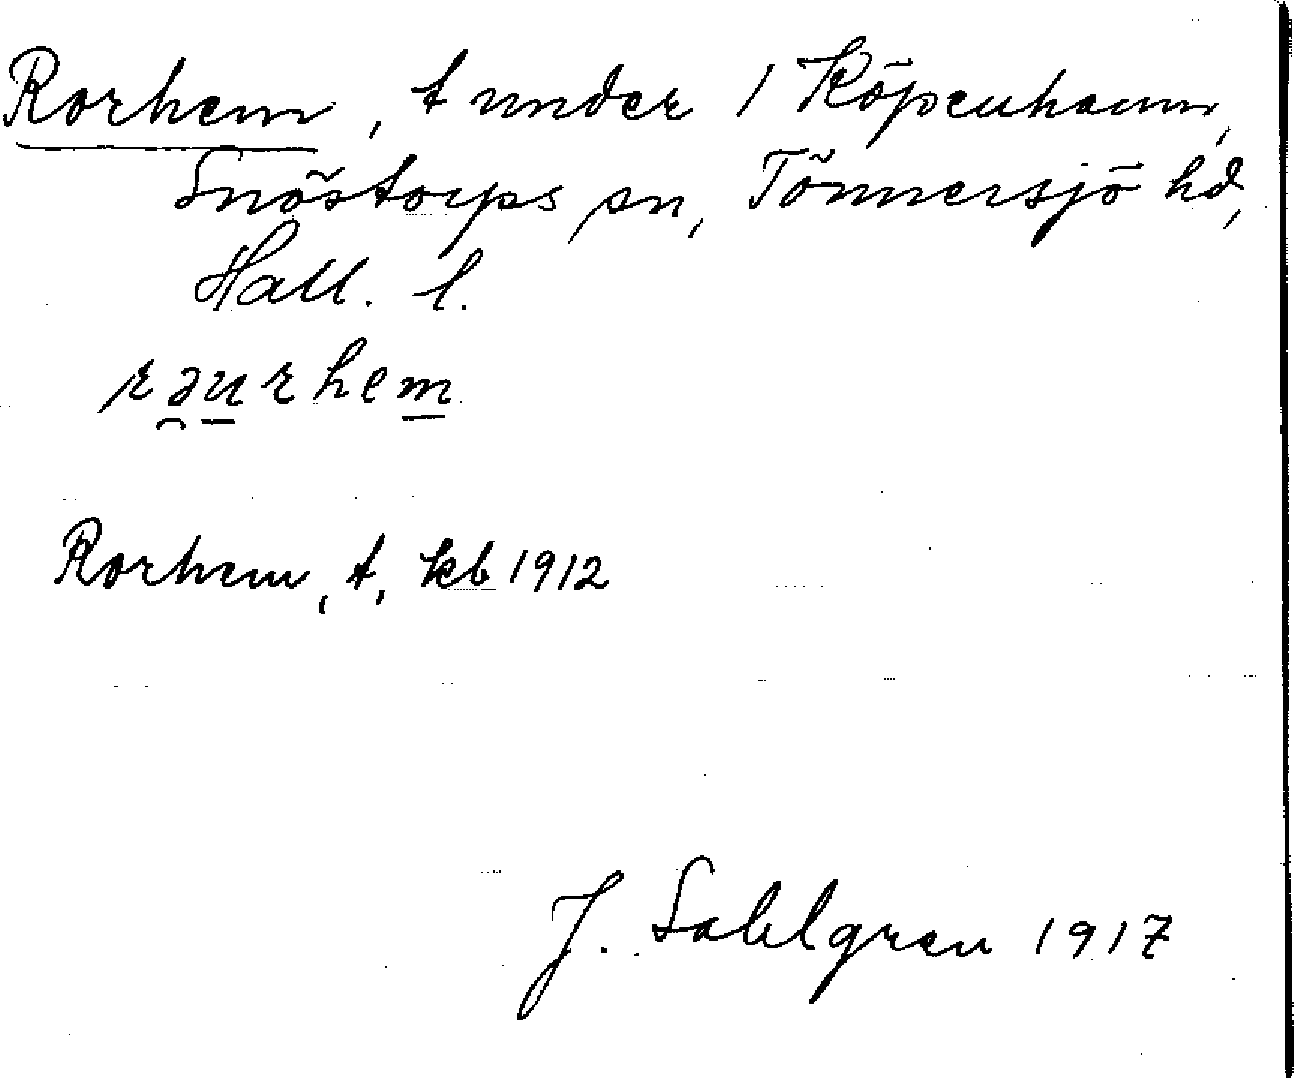 Rorhem, t under 1 Köpenhamn,
Snöstorps sn, Tönnersjö hd,
Hall. l.
rəu̱rhem̱
Rorhem, t, kb 1912
J. Sahlgren 1917